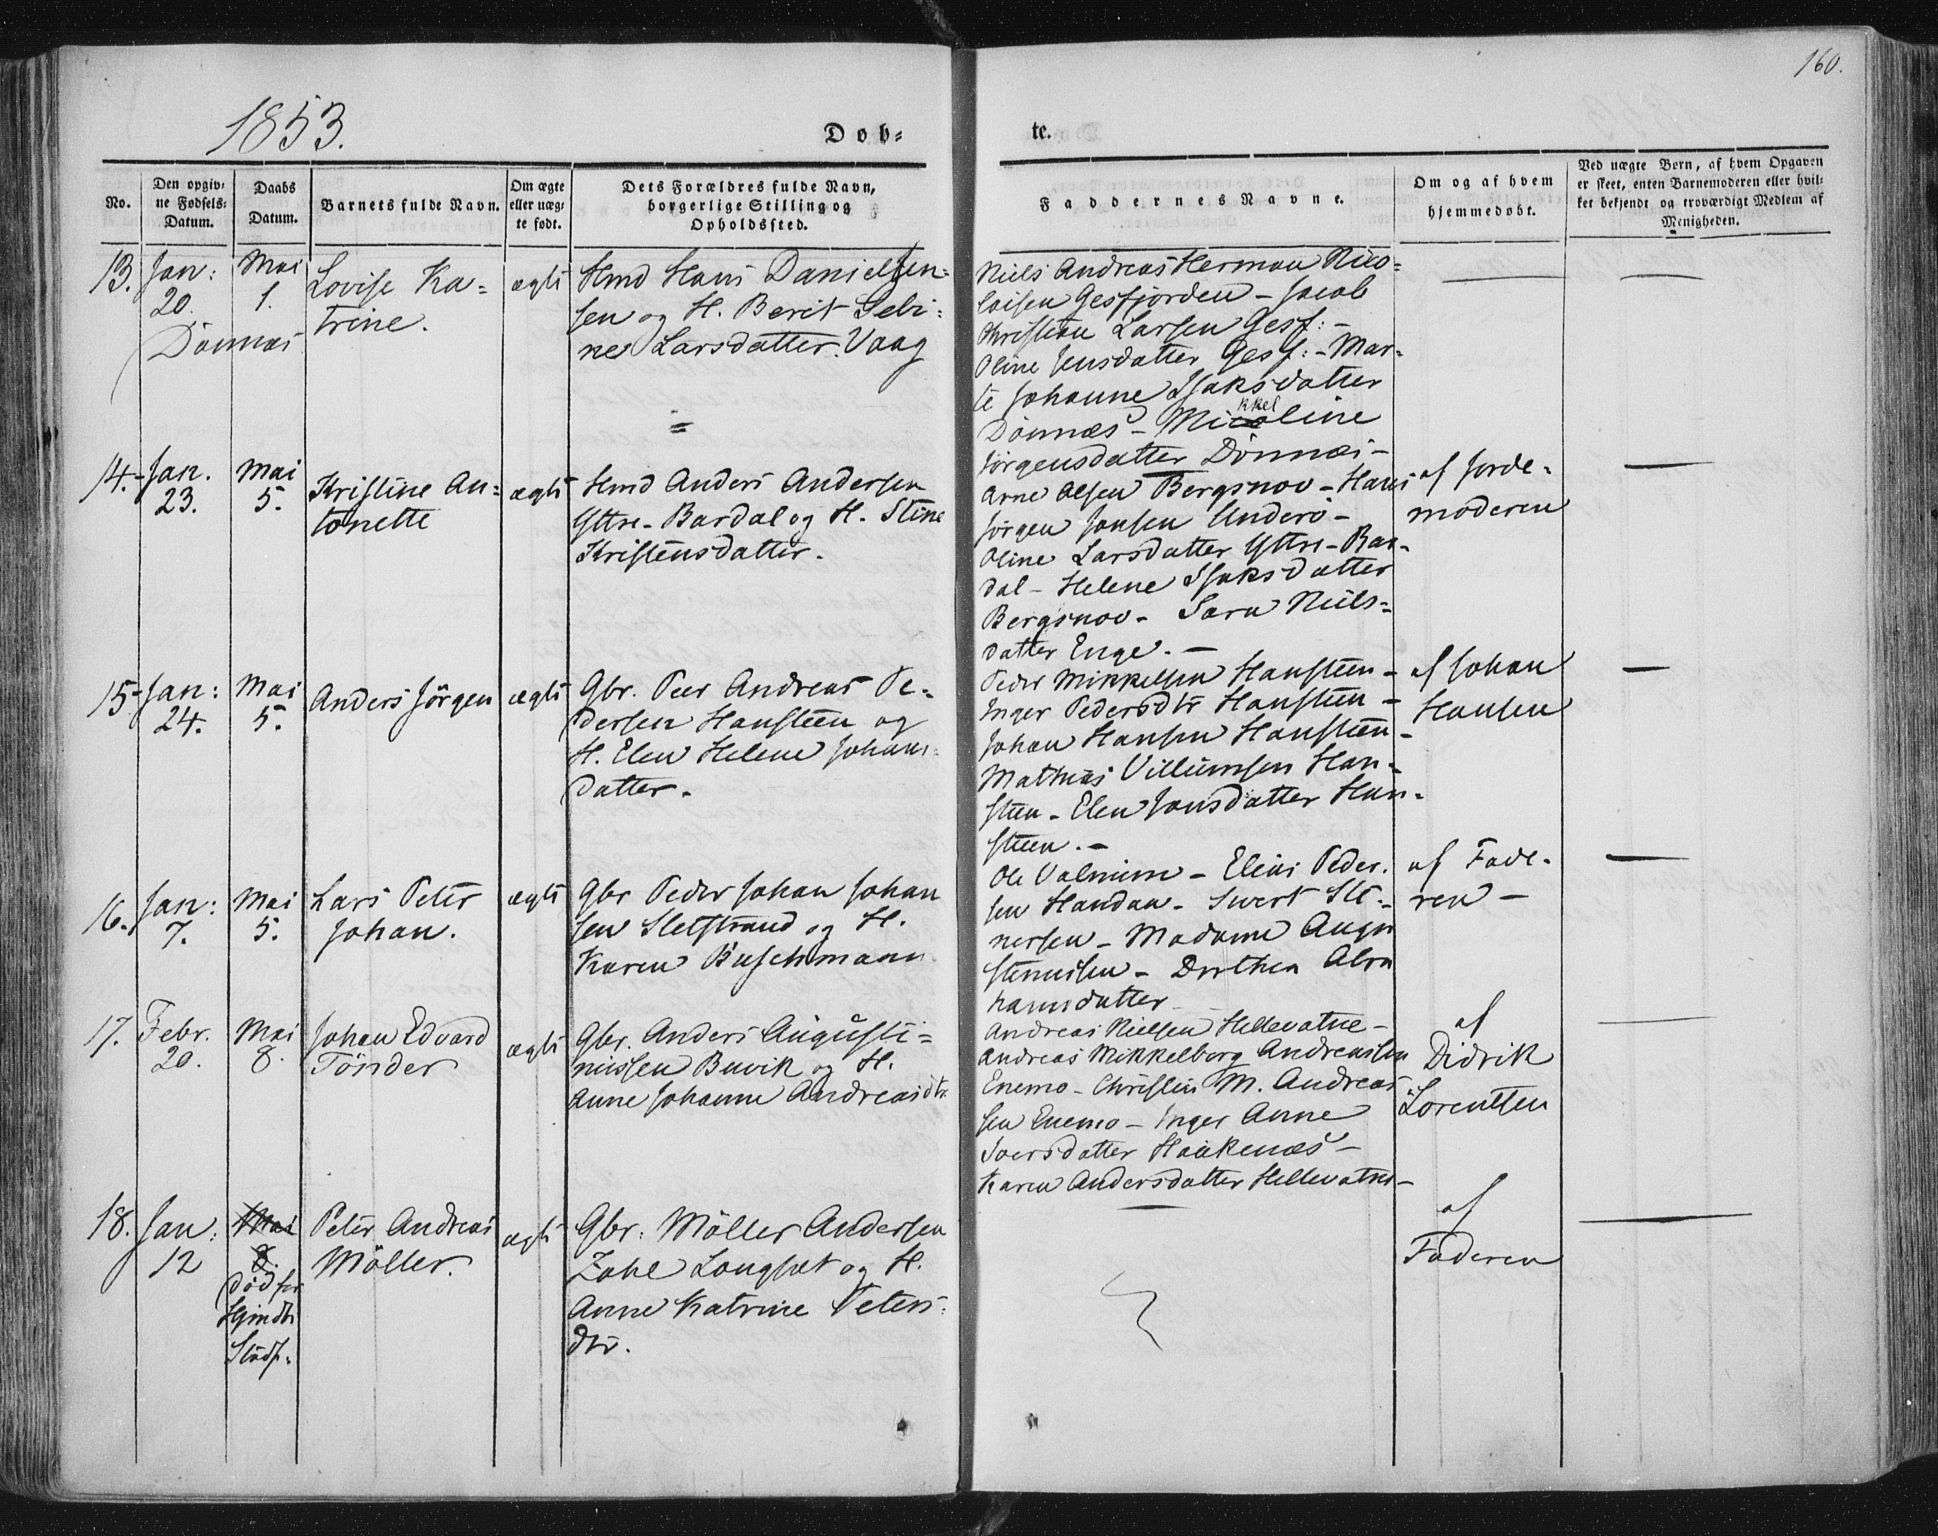 160.
1853.
Dob-
te.
No.
Den opgiv-
ne Fødsels-
Datum.
Daabs
Datum.
Barnets fulde Navn.
Om ægte
eller uæg-
te født.
Dets Forældres fulde Navn,
borgerlige Stilling og
Opholdssted.
Faddernes Navne.
Om og af hvem
hjemmedøbt.
Ved uægte Børn, af hvem Opgaven
er skeet, enten Barnemoderen eller hvil-
ket bekjendt og troværdigt Medlem af
Menigheden.
13.
Jan:
20.
Dönnæs
Mai
1.
Lovise Ka-
trine.
ægte
Hmd Hans Danielsen-
sen og H. Berit Sebi-
ne Larsdatter. Vaag
Niels Andreas Herman Nico-
laisen Gesfjorden - Jacob
Christian Larsen Gesf: -
Oline Jensdatter Gesf: - Mar-
te Johanne Isaksdatter
kkel
Dönnæs - Micoline
Jörgensdatter Dönnæs -
14.
Jan.
23.
Mai
5.
Kristine An-
tonette
ægte
Hmd Anders Andersen
Yttre-Bardal og H. Stine
Kristensdatter.
Arne Olsen Bergsnov - Hans
Jörgen Jonsen Underö -
Oline Larsdatter Yttre-Bar-
dal - Helene Isaksdatter
Bergsnov - Sara Niels-
datter Enge. -
af Jorde-
moderen
15
Jan:
24.
Mai
5.
Anders Jörgen
ægte
Gbr. Peer Andreas Pe-
dersen Hansteen og
H. Elen Helene Johans-
datter.
Peder Mikkelsen Hansteen -
Inger Pedersdtr Hansteen -
Johan Hansen Hansteen -
Mathias Villumsen Han-
steen - Elen Jonsdatter Han-
steen. -
af Johan
Hansen
16.
Jan:
7.
Mai
5.
Lars Peter
Johan.
ægte
Gbr Peder Johan Johan
sen Sletstrand og H.
Karen Buschmann
Ole Valnum - Elias Peder-
sen Handaa - Sivert Ste-
nersen - Madame Augu
stinusen - Dorthea Abra
hamsdatter
af Fade-
ren -
17.
Febr.
20.
Mai
8.
Johan Edvard
Tönder
ægte
Gbr. Anders Augusti-
nussen Buvik og H.
Anne Johanne Andreasdtr.
Andreas Nielsen Hellevatne -
Andreas Mikkelborg Andreassen
Enemo - Christen M. Andreas
sen Enemo - Inger Anne
Iversdatter Haakenæs -
Karen Andersdatter Hellevatne -
af
Didrik
Lorentsen
18.
Jan:
12
Mai
8.
död før
Hjmdb:
Stadf.
Peter Andreas
Möller.
ægte
Gbr: Möller Andersen
Zahl Longset og H.
Anne Katrine Peters-
dtr.
af
Faderen